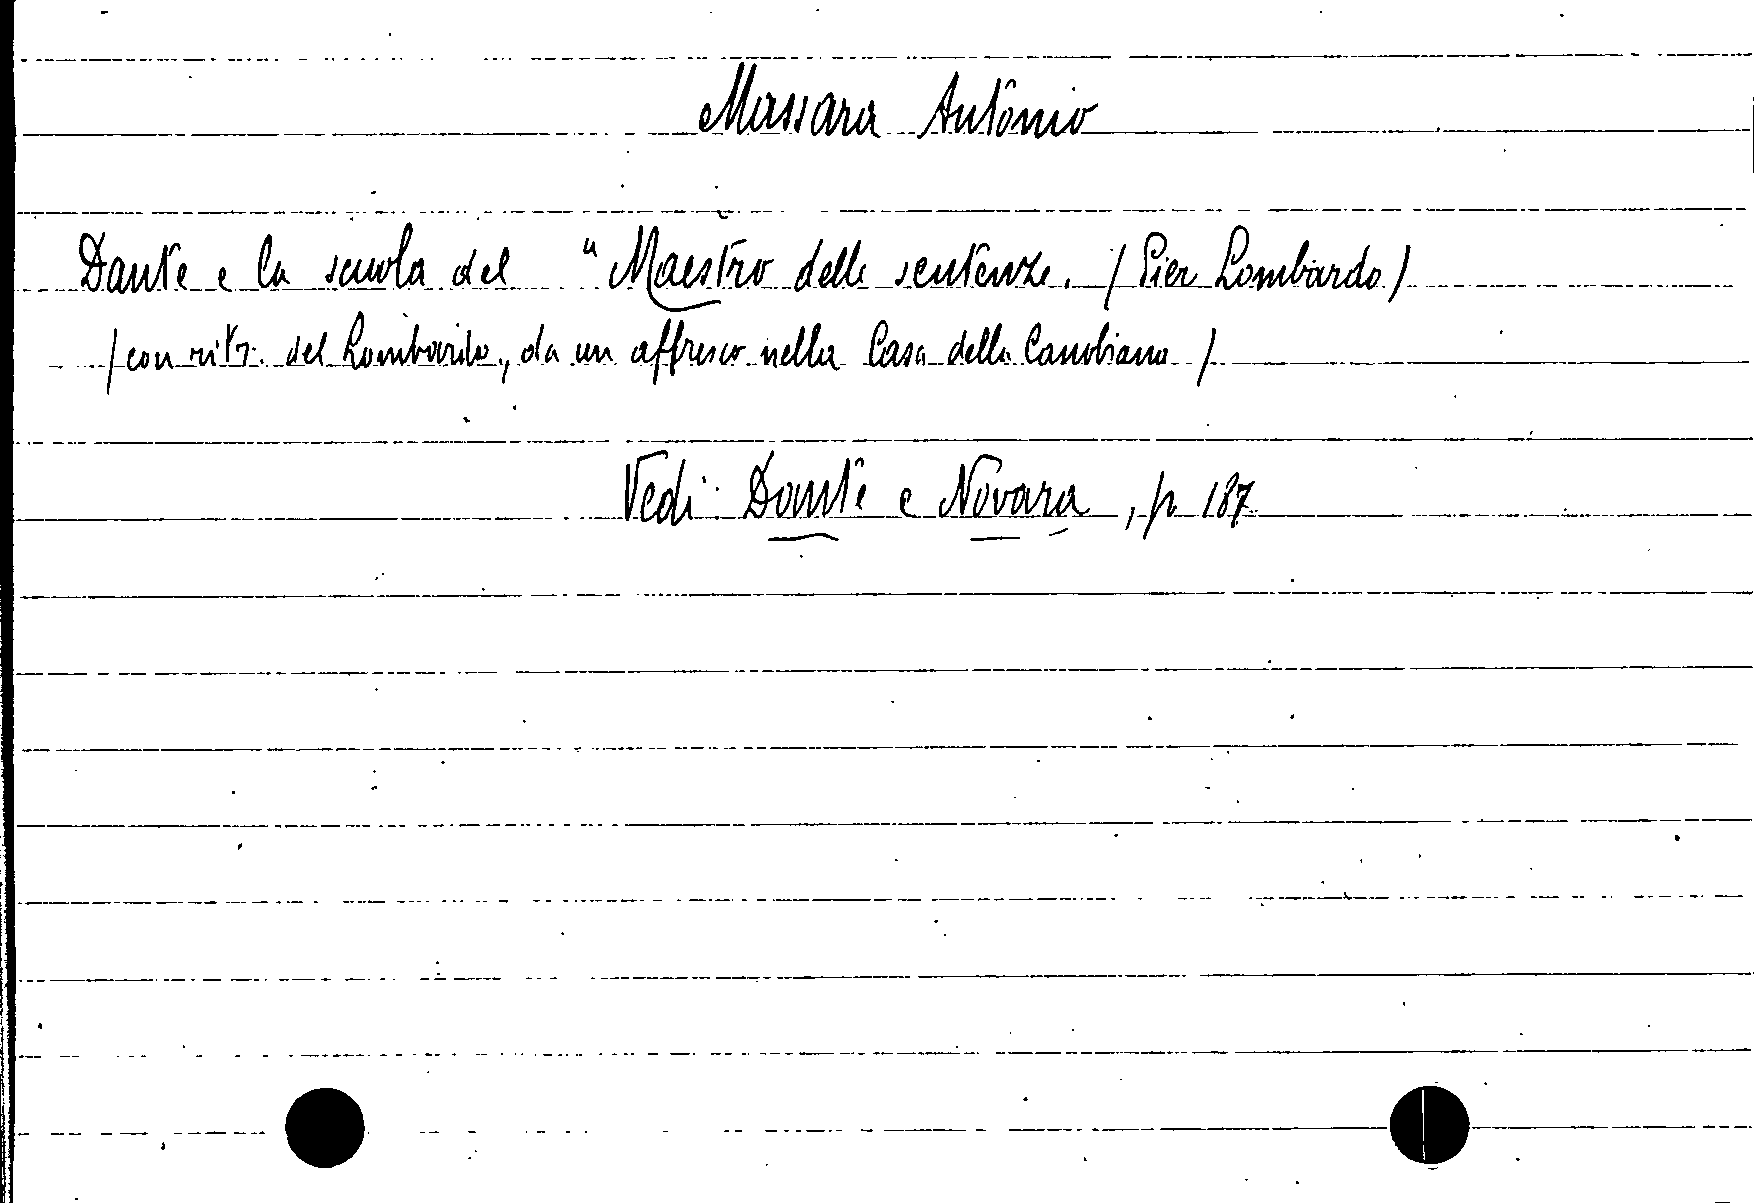 Massara Antonio
Dante e la scuola del "Maestro delle sentenze. (Pier Lombardo)
(con ritr. del Lombardo, da un affresco nella Casa della Canobiana)
Vedi: Dante e Novara, p. 187